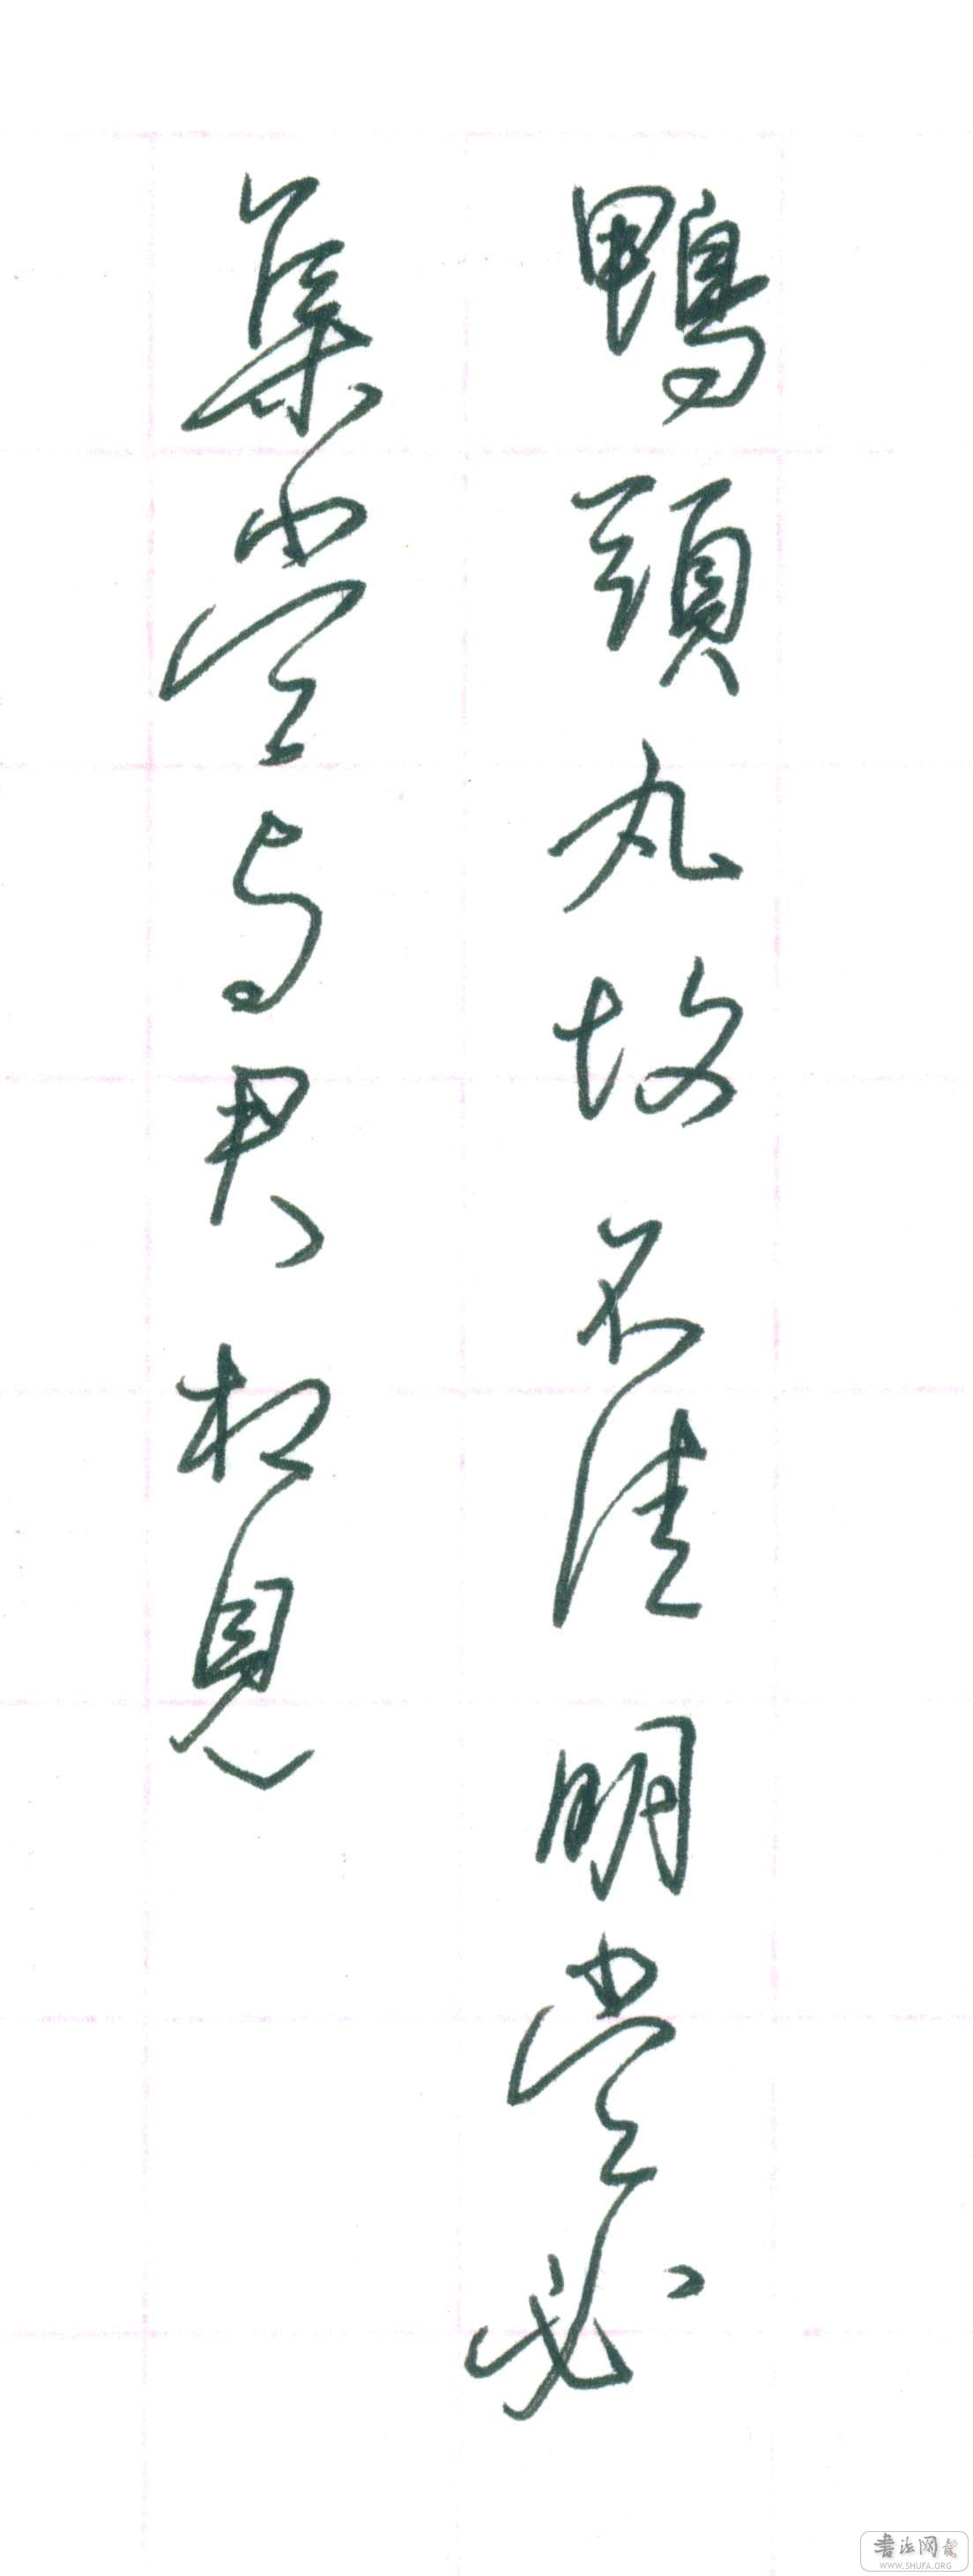 鴨頭丸故不佳明當必
集當与君相見
書法网
WWW.SHUFA.ORG